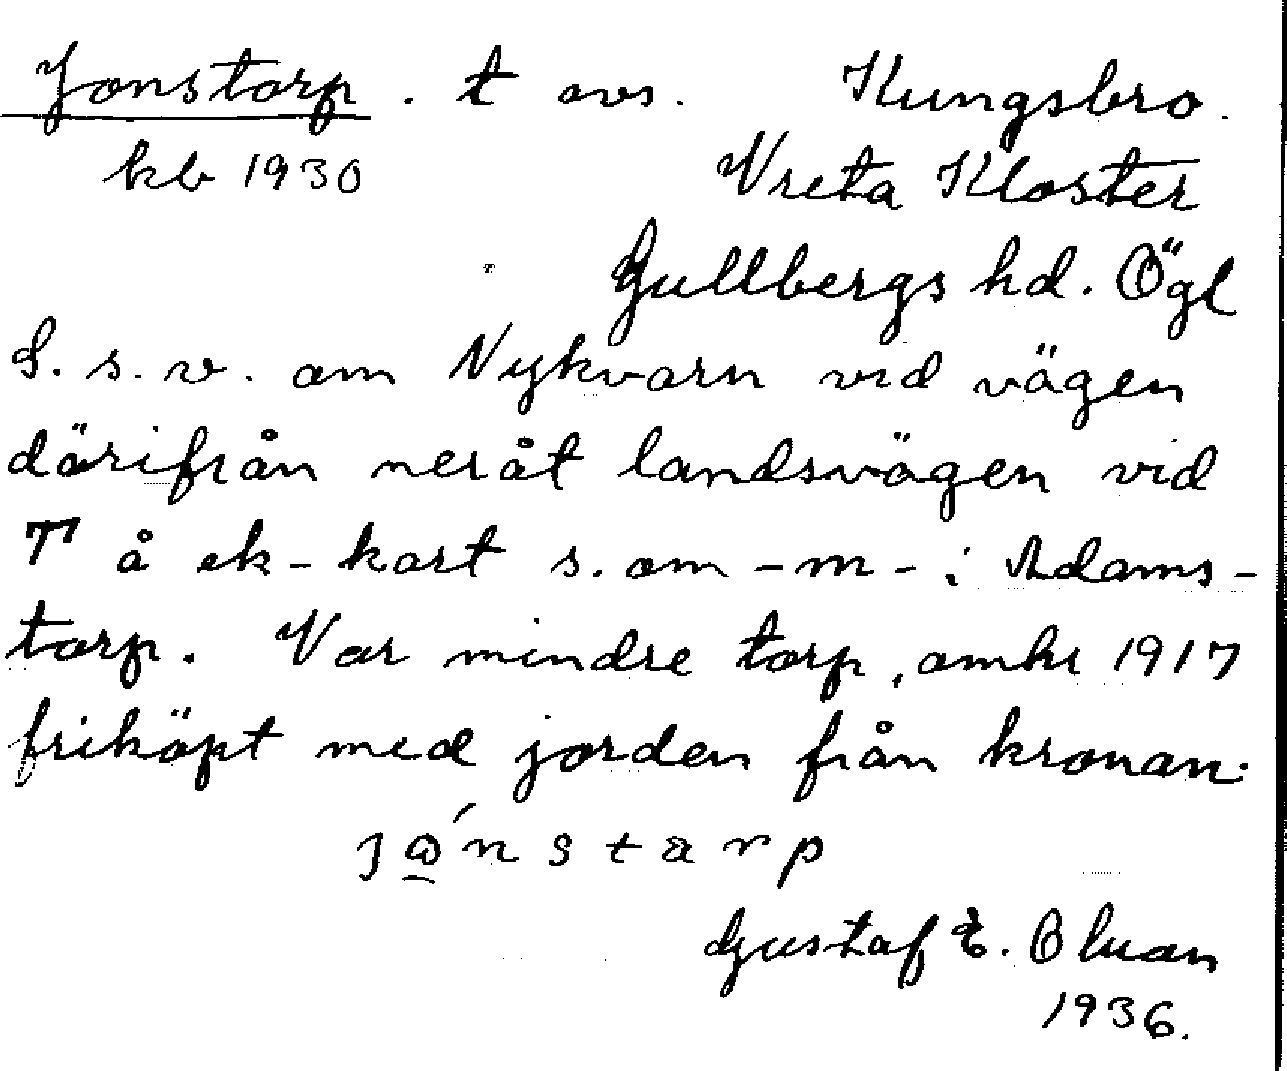 Jonstorp. t avs. Kungsbro.
kb 1930 Vreta Kloster
Gullbergs hd. Ögl
S. s. v. om Nykvarn vid vägen
därifrån neråt landsvägen vid
T å ek-kart s. om -m- i Adams-
torp. Var mindre torp, omkr 1917
friköpt med jorden från kronan.
Gustaf E. Oluan
1936.